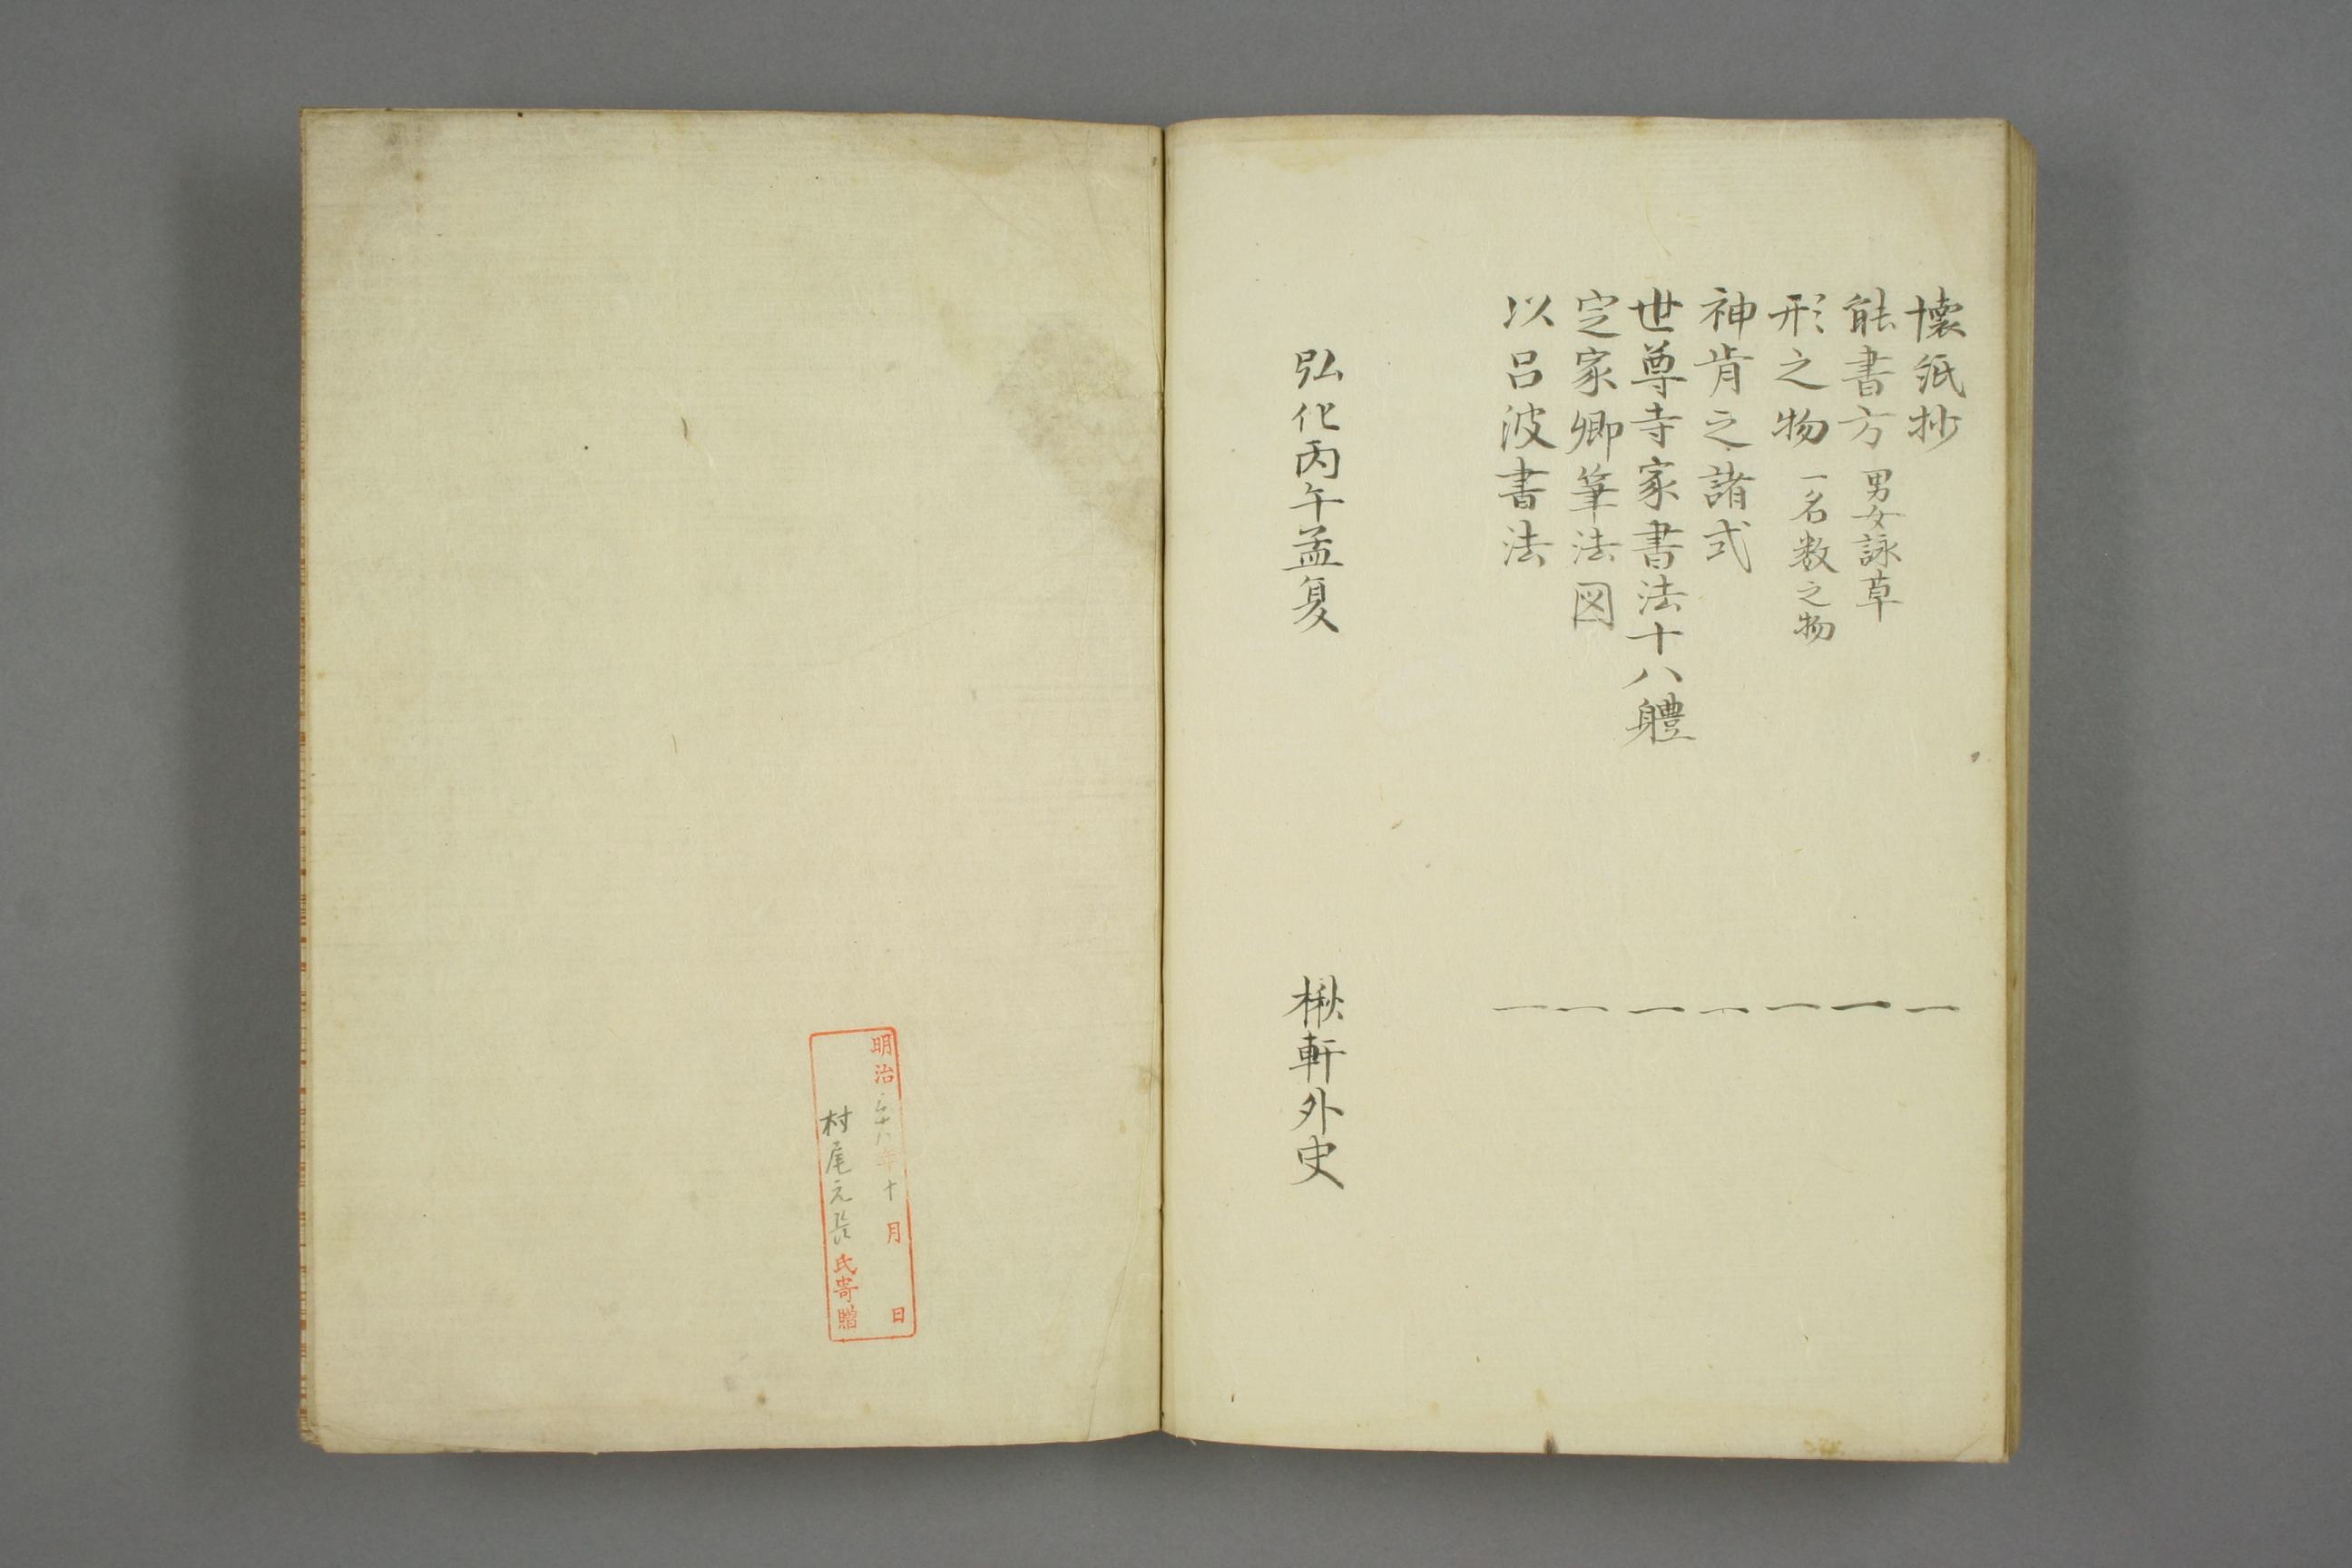 懐紙抄 一
能書方 男女詠草 一
形之物 一名数之物 一
神肯之諸式 一
世尊寺家書法十八軆 一
定家卿筆法図 一
以呂波書法 一
弘化丙午孟夏 楸軒外史
明治 年十月 日
村尾元長氏寄贈